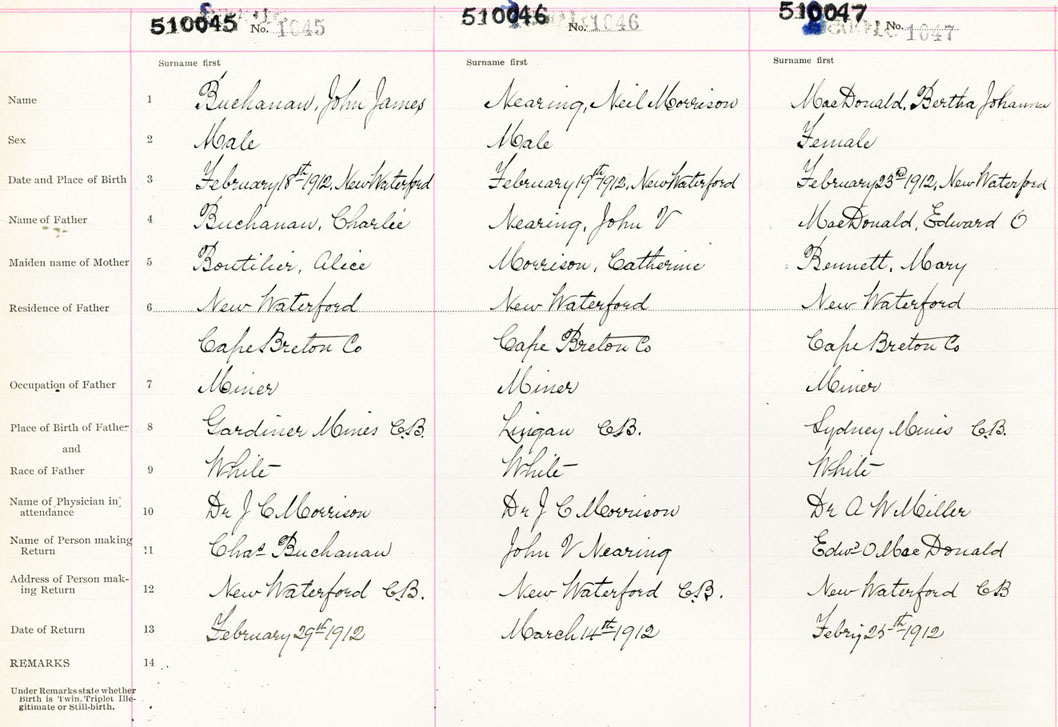 510045 No. 1045 510046 No. 1046 510047 No. 1047
Surname first Surname first Surname first
Name 1 Buchanan, John James Nearing, Neil Morrison MacDonald, Bertha Johanna
Sex 2 Male Male Female
Date and Place of Birth 3 February 18th 1912, New Waterford February 19th 1912, New Waterford February 23rd 1912, New Waterford
Name of Father 4 Buchanan, Charlie Nearing, John V MacDonald, Edward O
Maiden name of Mother 5 Boutilier, Alice Morrison, Catherine Bennett, Mary
Residence of Father 6 New Waterford New Waterford New Waterford
Cape Breton Co Cape Breton Co Cape Breton Co
Occupation of Father 7 Miner Miner Miner
Place of Birth of Father 8 Gardiner Mines C.B. Lingan C.B. Sydney Mines C.B.
and
Race of Father 9 White White White
Name of Physician in
attendance 10 Dr J C Morrison Dr J C Morrison Dr A W Miller
Name of Person making
Return 11 Chas Buchanan John V Nearing Edwd O MacDonald
Address of Person mak-
ing Return 12 New Waterford C.B. New Waterford C.B. New Waterford CB
Date of Return 13 February 29th 1912 March 14th 1912 Febry 25th 1912
REMARKS 14
Under Remarks state whether
Birth is Twin, Triplet Ille-
gitimate or Still-birth.